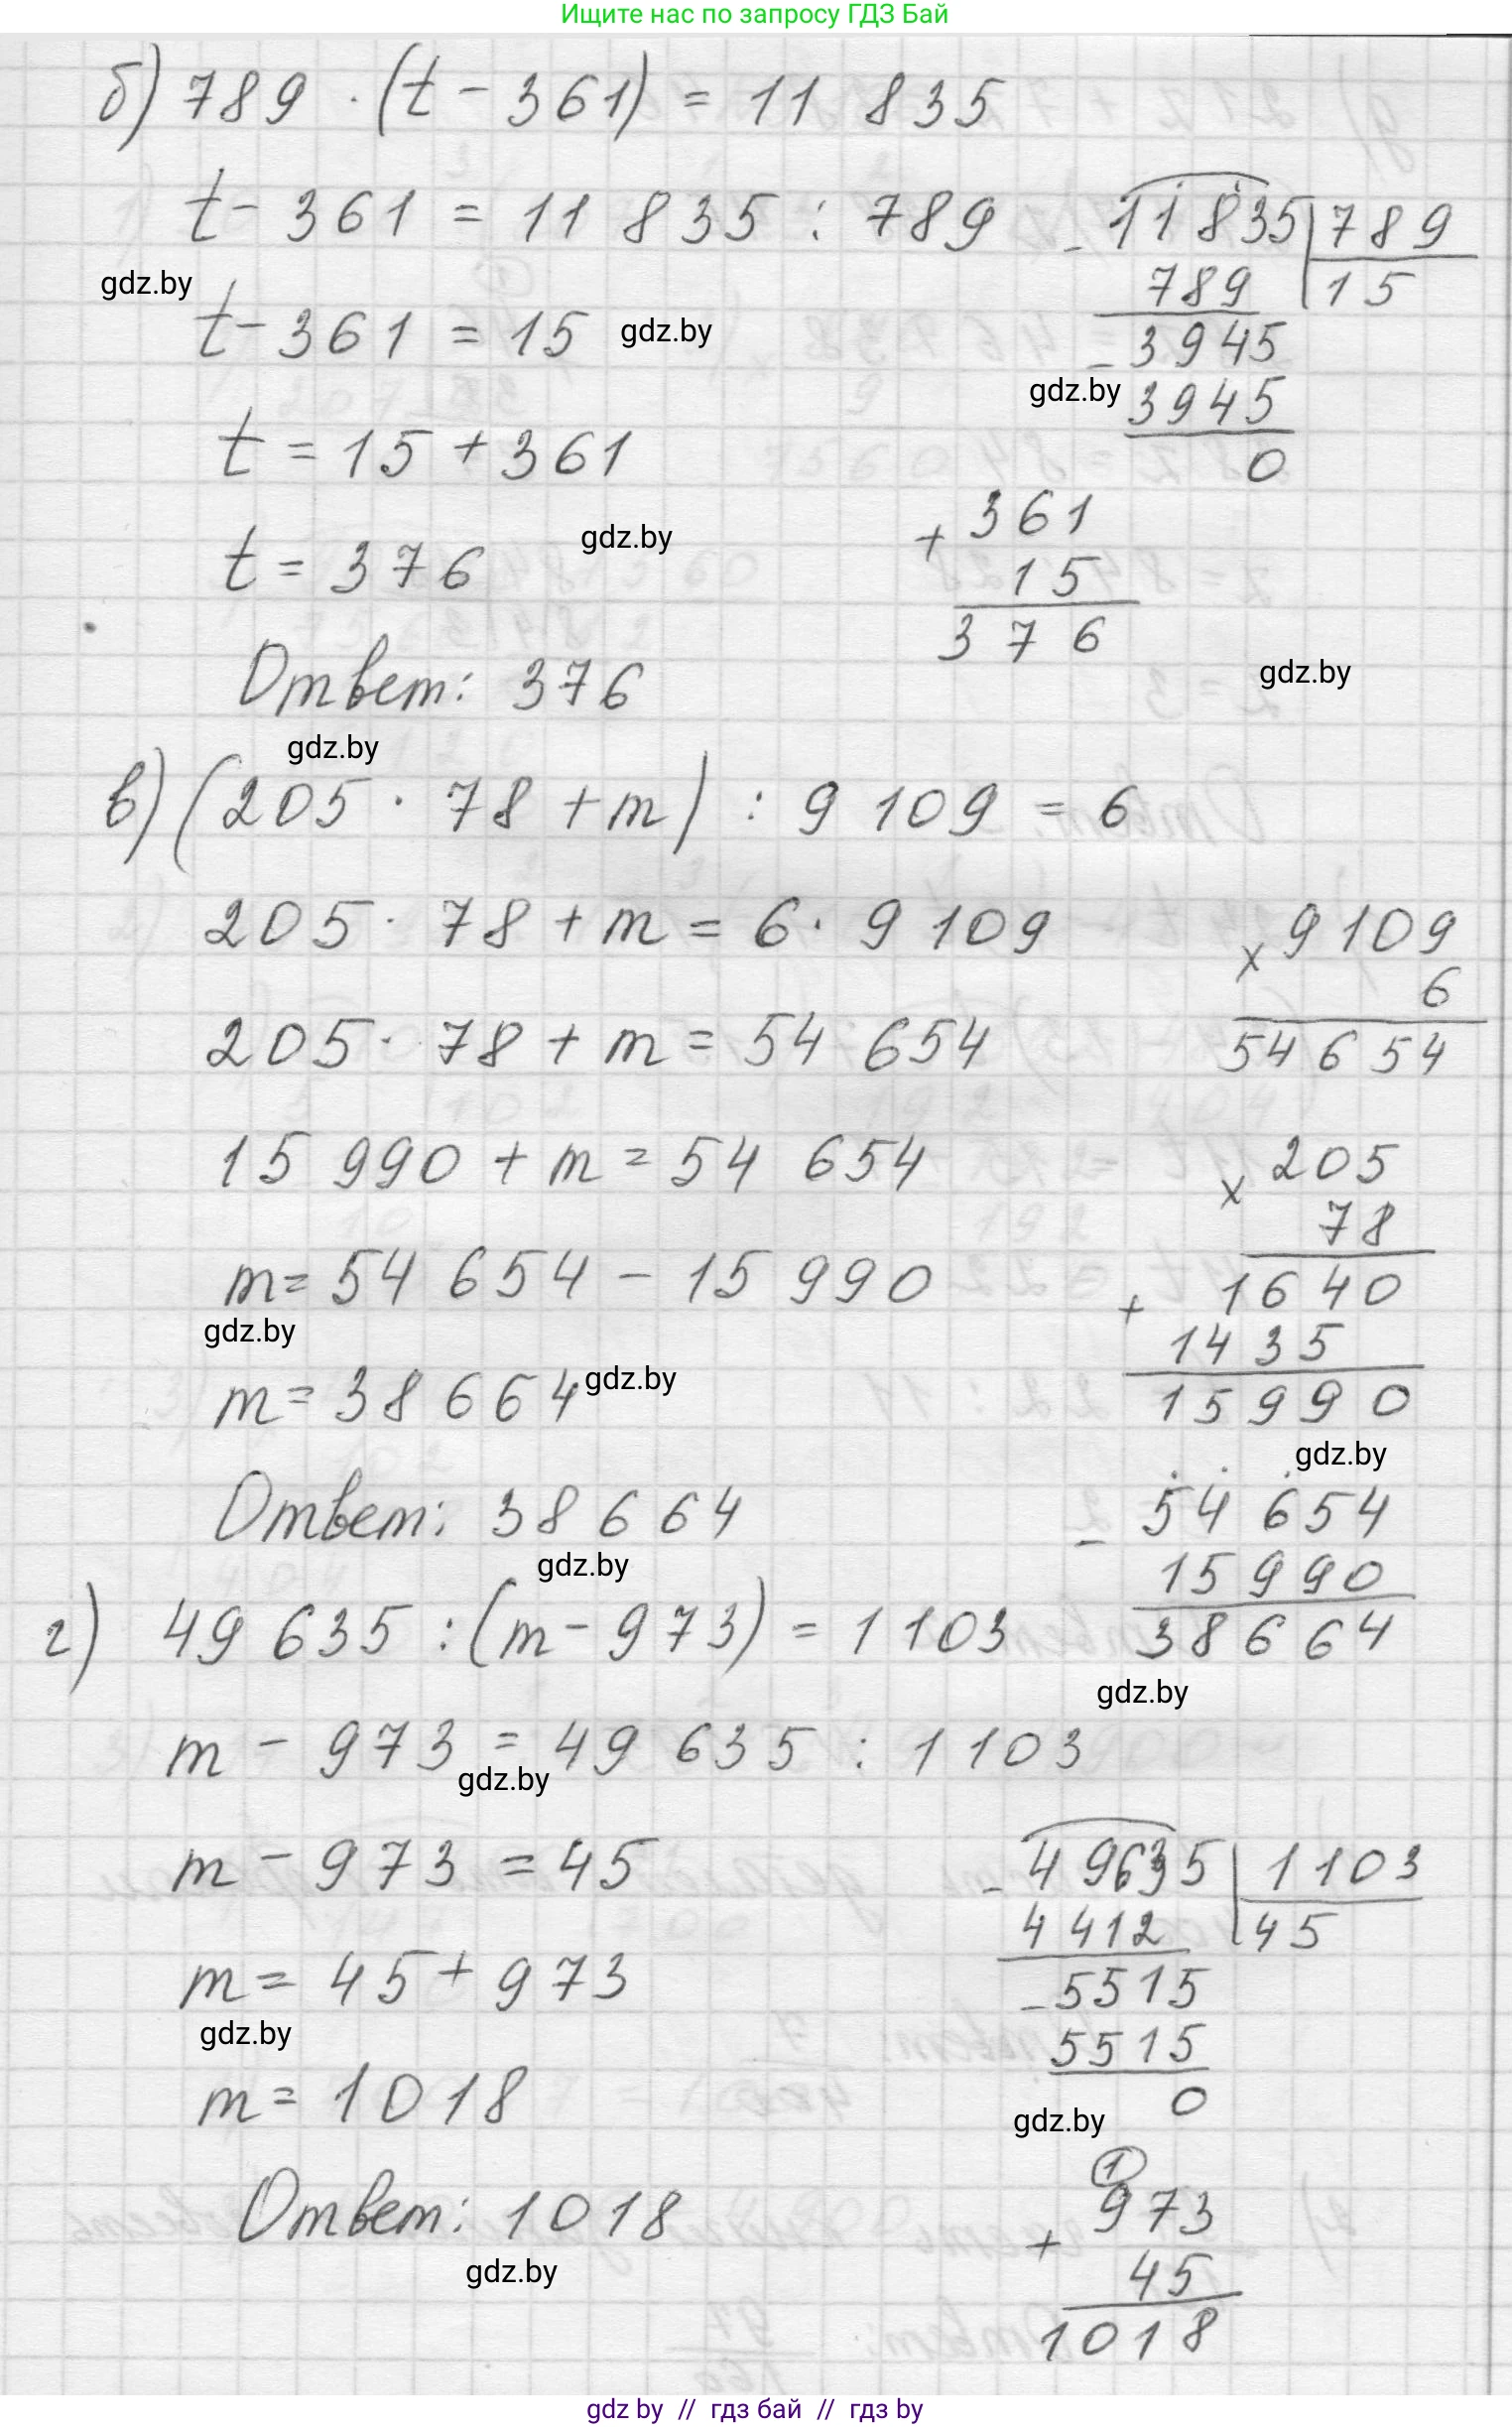 Ищите нас по запросу ГДЗ Бай
б) 789 · (t - 361) = 11 835
t - 361 = 11 835 : 789
gdz.by
t - 361 = 15 gdz.by
t = 15 + 361
t = 376 gdz.by
Ответ: 376
gdz.by
- 11835 | 789
789 | 15
- 3945
gdz.by 3945
0
+ 361
15
376
gdz.by
в) (205 · 78 + m) : 9 109 = 6
205 · 78 + m = 6 · 9 109
205 · 78 + m = 54 654
15 990 + m = 54 654
m = 54 654 - 15 990
gdz.by
m = 38 664 gdz.by
Ответ: 38 664
gdz.by
× 9109
6
54 654
× 205
78
+ 1640
1435
15990
gdz.by
- 54 654
15 990
38 664
gdz.by
г) 49 635 : (m - 973) = 1 103
m - 973 = 49 635 : 1 103
gdz.by
m - 973 = 45
m = 45 + 973
gdz.by
m = 1018
Ответ: 1018
gdz.by
- 49635 | 1103
4412 | 45
- 5515
5515
0
gdz.by
1
+ 973
45
1018
gdz by // гдз бай // гдз by